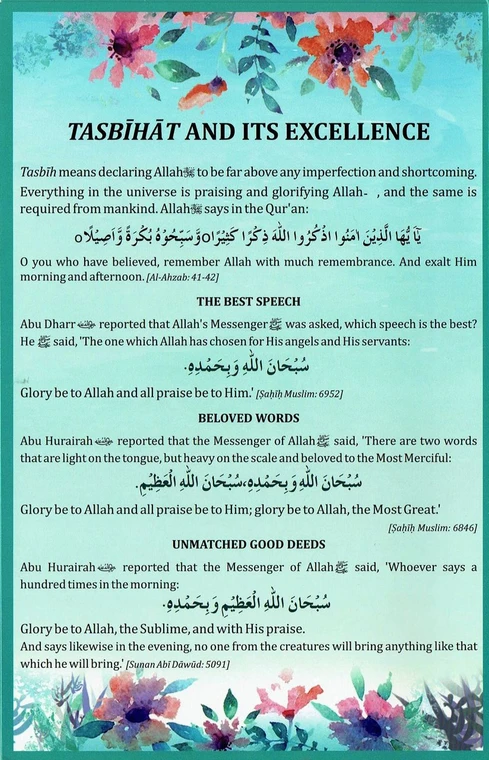 TASBĪHĀT AND ITS EXCELLENCE
Tasbīh means declaring Allahﷻ to be far above any imperfection and shortcoming.
Everything in the universe is praising and glorifying Allah- , and the same is
required from mankind. Allahﷻ says in the Qur'an:
يٰٓاَيُّهَا الَّذِيْنَ اٰمَنُوا اذْكُرُوا اللّٰهَ ذِكْرًا كَثِيْرًا○وَّسَبِّحُوْهُ بُكْرَةً وَّاَصِيْلًا○
O you who have believed, remember Allah with much remembrance. And exalt Him
morning and afternoon. [Al-Ahzab: 41-42]
THE BEST SPEECH
Abu Dharr reported that Allah's Messenger ﷺ was asked, which speech is the best?
He ﷺ said, 'The one which Allah has chosen for His angels and His servants:
سُبْحَانَ اللّٰهِ وَبِحَمْدِهٖ.
Glory be to Allah and all praise be to Him.' [Ṣaḥīḥ Muslim: 6952]
BELOVED WORDS
Abu Hurairah reported that the Messenger of Allah ﷺ said, 'There are two words
that are light on the tongue, but heavy on the scale and beloved to the Most Merciful:
سُبْحَانَ اللّٰهِ وَبِحَمْدِهٖ،سُبْحَانَ اللّٰهِ الْعَظِيْمِ.
Glory be to Allah and all praise be to Him; glory be to Allah, the Most Great.'
[Ṣaḥīḥ Muslim: 6846]
UNMATCHED GOOD DEEDS
Abu Hurairah reported that the Messenger of Allah ﷺ said, 'Whoever says a
hundred times in the morning:
سُبْحَانَ اللّٰهِ الْعَظِيْمِ وَبِحَمْدِهٖ.
Glory be to Allah, the Sublime, and with His praise.
And says likewise in the evening, no one from the creatures will bring anything like that
which he will bring.' [Sunan Abī Dāwūd: 5091]